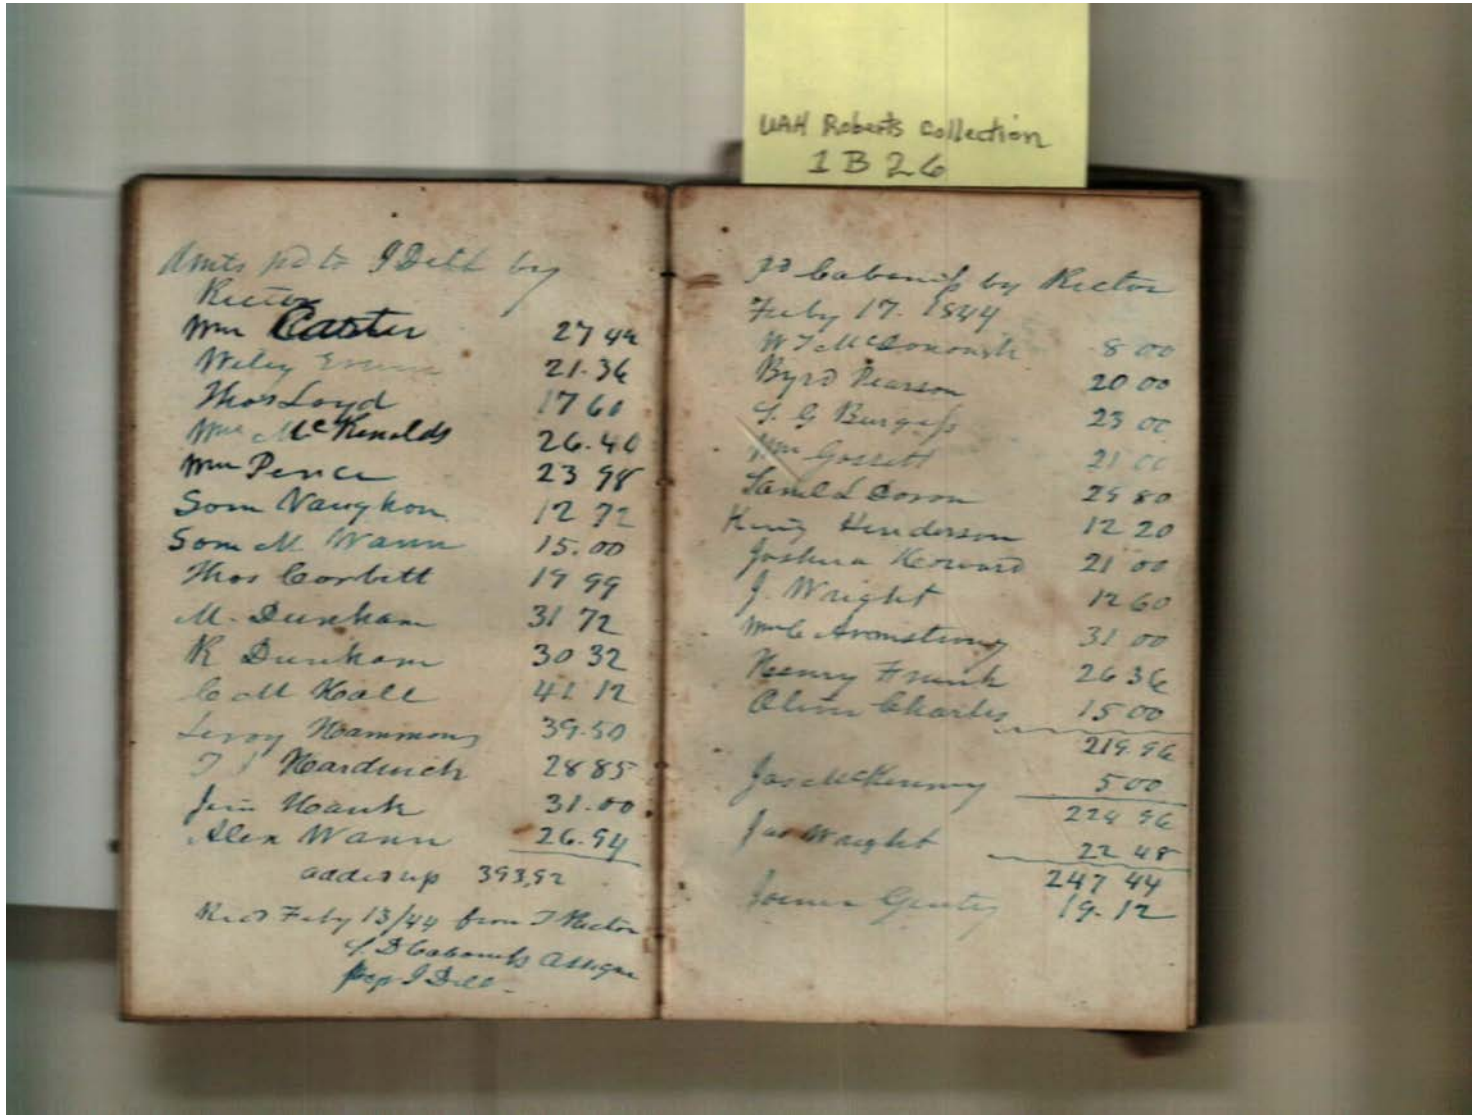 UAH Roberts Collection
1 B 26
Amts pd to I Dill by
Rector
Wm Carter 27 44
Wiley 21.36
Thos Loyd 17 60
Wm McRenolds 26.40
Wm Pence 23 98
Som Vaughon 12 72
Som M Wann 15.00
Thos Corbitt 19 99
M. Dunham 31 72
R Dunham 30 32
C M Hall 41 12
Leroy Hammons 39.50
T J Hardwich 28 85
Jim Hauk 31.00
Alex Wann 26.94
addes up 393,92
Recd Feby 13/44 from T Rector
S. D Cabaniss Assigne
pep I Dill.
pd Cabaniss by Rector
Feby 17. 1844
W T McDonough 8 00
Byrd Pearson 20 00
S. G Burgess 23 00
Wm Gossett 21 00
Saml L Doron 29 80
King Henderson 12 20
Joshua Howard 21 00
J. Wright 12 60
Wm C Armstrong 31 00
Henry Frank 26 36
Oliver Charles 15 00
219.96
Jas McKinney 5 00
224 96
Jas Wright 22 48
247 44
Gentry 19.12